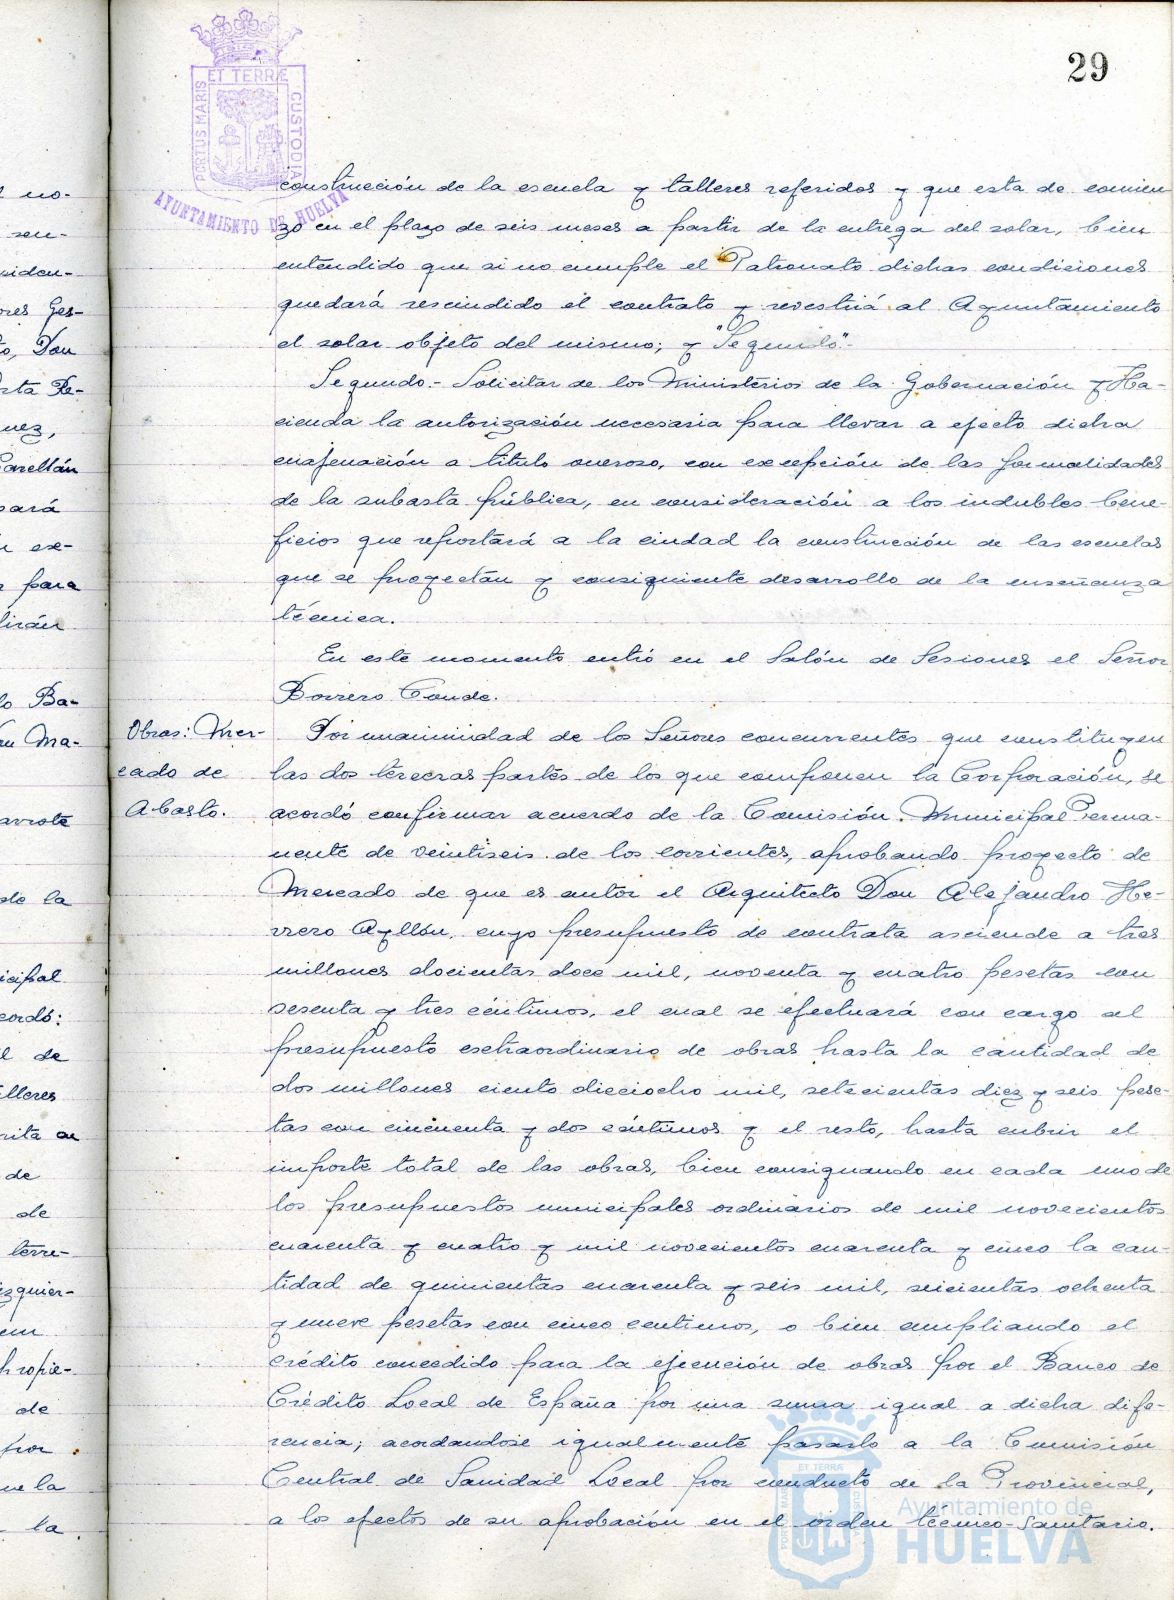 29
ET TERRÆ
PORTUS MARIS
CUSTODIA
AYUNTAMIENTO DE HUELVA
construcción de la escuela y talleres referidos y que esta de comien
zo en el plazo de seis meses a partir de la entrega del solar, bien
entendido que si no cumple el Patronato dichas condiciones
quedará rescindido el contrato y revestirá al Ayuntamiento
el solar objeto del mismo; y "Segundo".-
Segundo.- Solicitar de los Ministerios de la Gobernación y Ha-
cienda la autorización necesaria para llevar a efecto dicha
enajenación a título oneroso, con excepción de las formalidades
de la subasta pública, en consideración a los indubles bene-
ficios que reportará a la ciudad la construcción de las escuelas
que se proyectan y consiguiente desarrollo de la enseñanza
técnica.
En este momento entró en el Salón de Sesiones el Señor
Borrero Conde.
Obras: Mer-
cado de
Abasto.
Por unanimidad de los Señores concurrentes que constituyen
las dos terceras partes de los que componen la Corporación, se
acordó confirmar acuerdo de la Comisión Municipal Perma-
nente de veintiseis de los corrientes, aprobando proyecto de
Mercado de que es autor el Arquitecto Don Alejandro He-
rrero Ayllón, cuyo presupuesto de contrata asciende a tres
millones docientas doce mil, noventa y cuatro pesetas con
sesenta y tres céntimos, el cual se efectuará con cargo al
presupuesto esctraordinario de obras hasta la cantidad de
dos millones ciento dieciocho mil, setecientas diez y seis pese-
tas con cincuenta y dos céntimos y el resto, hasta cubrir el
importe total de las obras, bien consignando en cada uno de
los presupuestos municipales ordinarios de mil novecientos
cuarenta y cuatro y mil novecientos cuarenta y cinco la can-
tidad de quinientas cuarenta y seis mil, seicientas ochenta
y nueve pesetas con cinco centimos, o bien ampliando el
crédito concedido para la ejecución de obras por el Banco de
Crédito Local de España por una suma igual a dicha dife-
rencia; acordandose igualmente pasarlo a la Comisión
Central de Sanidad Local por conducto de la Provincial,
a los efectos de su aprobación en el orden técnico-Sanitario.
Ayuntamiento de
HUELVA